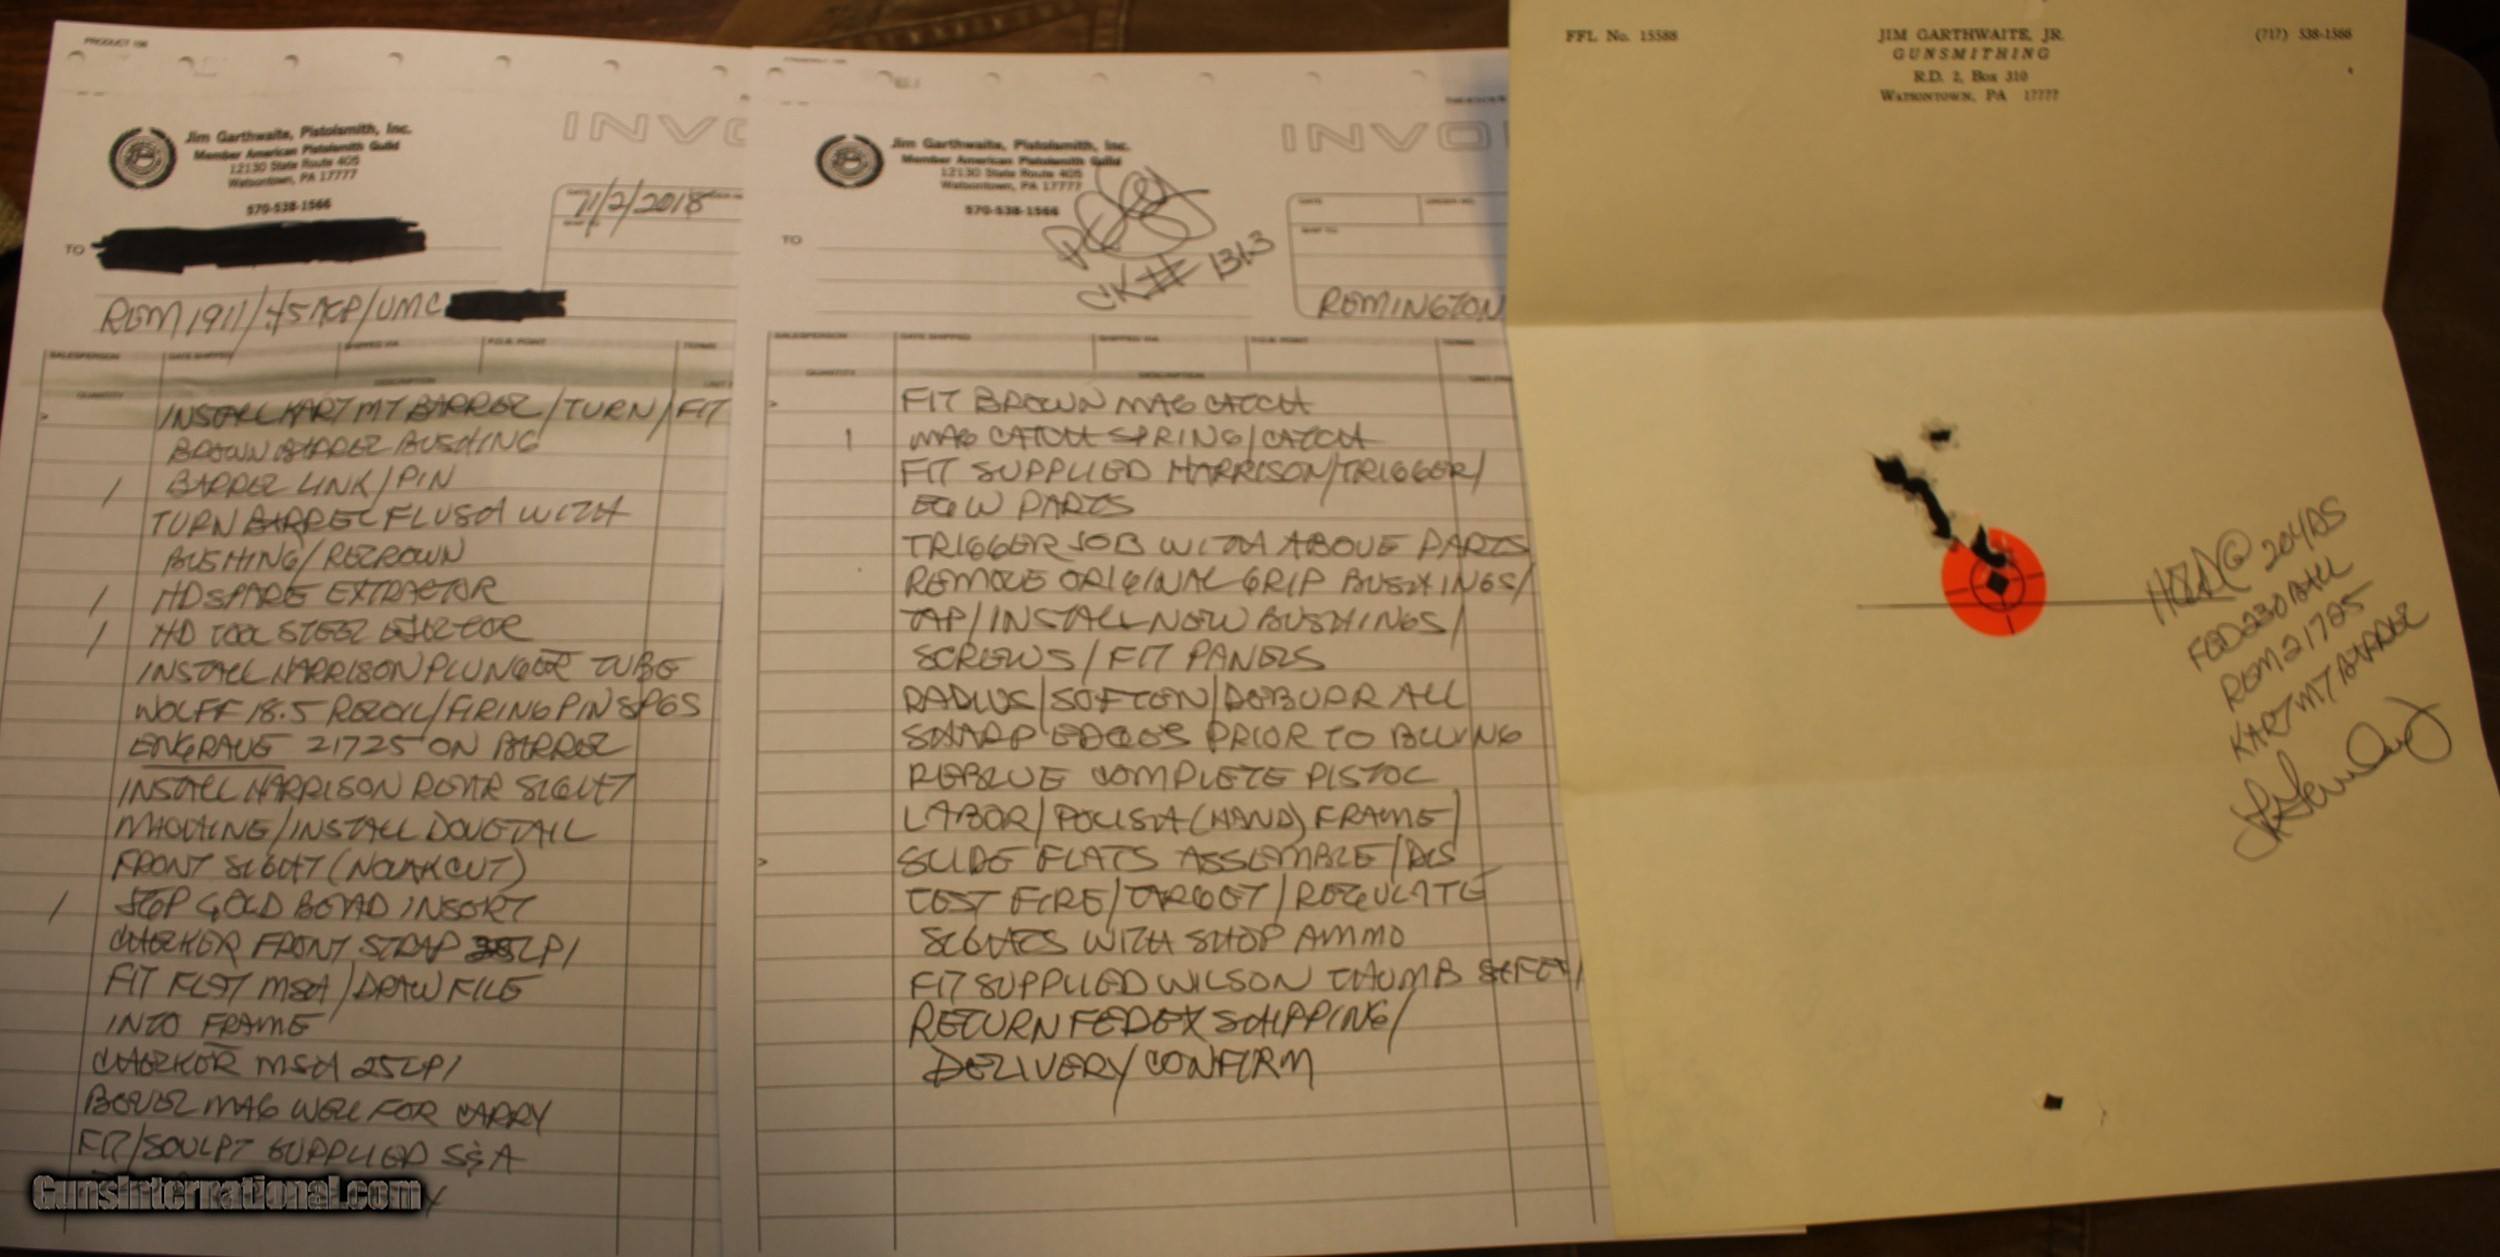 Jim Garthwaite, Pistolsmith, Inc.
Member American Pistolsmith Guild
12130 State Route 405
Watsontown, PA 17777
570-538-1566
INVO
DATE
11/2/2018
TO
REM 1911/.45 ACP/UMC
SALESPERSON DATE SHIPPED SHIPPED VIA F.O.B. POINT TERMS
QUANTITY DESCRIPTION
INSTALL KART MT BARREL/TURN/FIT
BROWN BARREL BUSHING
1 BARREL LINK/PIN
TURN BARREL FLUSH WITH
BUSHING/RECROWN
1 HD SPARE EXTRACTOR
1 HD TOOL STEEL EJECTOR
INSTALL HARRISON PLUNGER TUBE
WOLFF 18.5 RECOIL/FIRING PIN SPGS
ENGRAVE 21725 ON BARREL
INSTALL HARRISON REAR SIGHT
MACHINE/INSTALL DOVETAIL
FRONT SIGHT (NOVAK CUT)
1 GOLD BEAD INSERT
CHECKER FRONT STRAP LPI
FIT FLAT MSH/DRAW FILE
INTO FRAME
CHECKER MSH 25LPI
BEVEL MAG WELL FOR CARRY
FIT/SCULPT SUPPLIED S&A
GunsInternational.com
Jim Garthwaite, Pistolsmith, Inc.
Member American Pistolsmith Guild
12130 State Route 405
Watsontown, PA 17777
570-538-1566
INVO
CK# 1313
DATE
TO
REMINGTON
SALESPERSON DATE SHIPPED SHIPPED VIA F.O.B. POINT TERMS
QUANTITY DESCRIPTION
FIT BROWN MAG CATCH
1 MAG CATCH SPRING/CATCH
FIT SUPPLIED HARRISON/TRIGGER/
EGW PARTS
TRIGGER JOB WITH ABOVE PARTS
REMOVE ORIGINAL GRIP BUSHINGS/
TAP/INSTALL NEW BUSHINGS/
SCREWS/FIT PANELS
RADIUS/SOFTEN/DEBURR ALL
SHARP EDGES PRIOR TO BLUING
REBLUE COMPLETE PISTOL
LABOR/POLISH (HAND) FRAME/
SLIDE FLATS ASSEMBLE/DIS
TEST FIRE/TARGET/REGULATE
SIGHTS WITH SHOP AMMO
FIT SUPPLIED WILSON THUMB SAFETY
RETURN FEDEX SHIPPING/
DELIVERY CONFIRM
FFL No. 15588
JIM GARTHWAITE, JR.
GUNSMITHING
R.D. 2, Box 310
Watsontown, PA 17777
(717) 538-1566
@ 20YDS
FED 230 BALL
REM 21725
KART MT BARREL